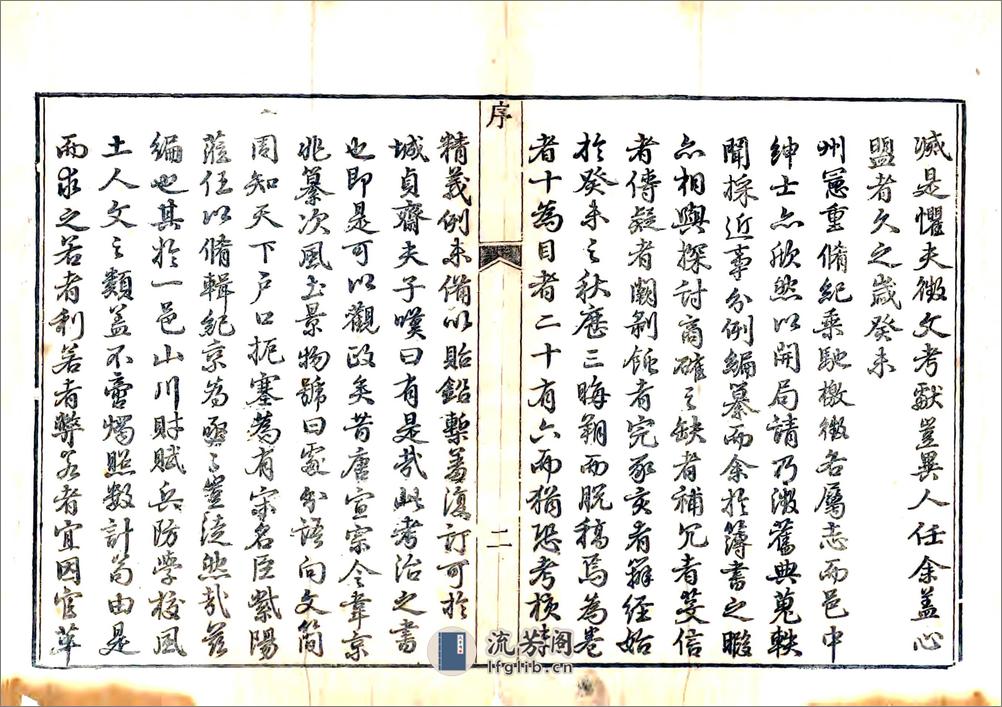 滅是懼夫徵文考獻豈異人任余蓋心
盟者久之歲癸未
州憲重脩紀乘馳檄徵各属志而邑中
紳士亦欣然以開局請乃潊舊典蒐軼
聞採近事分例編纂而余於簿書之暇
亦相與探討商確之缺者補冗者芟信
者傳疑者闕剝蝕者完豕亥者辯經始
於癸未之秋歷三晦朔而脱稿焉為卷
者十為目者二十有六而猶恐考核未
序
二
精義例未備以貽鉛槧羞復訂可於
城貞齋夫子嘆曰有是哉此考治之書
也即是可以觀政矣昔唐宣宗令韋
兆纂次風土景物號曰處分語向文簡
周知天下户口扼塞蔫有宋名臣紫陽
蒞任以脩輯紀京為亟亟豈徒然哉茲
編也其於一邑山川財賦兵防學校風
土人文之類蓋不啻燭照數計苟由是
而求之若者利若者弊若者宜因宜革
流芳阁
lfglib.cn